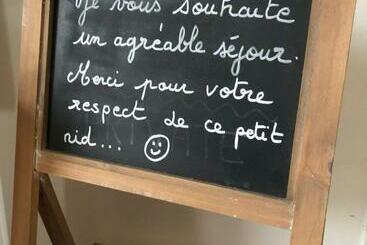 Je vous souhaite
un agréable séjour.
Merci pour votre
respect de ce petit
nid...